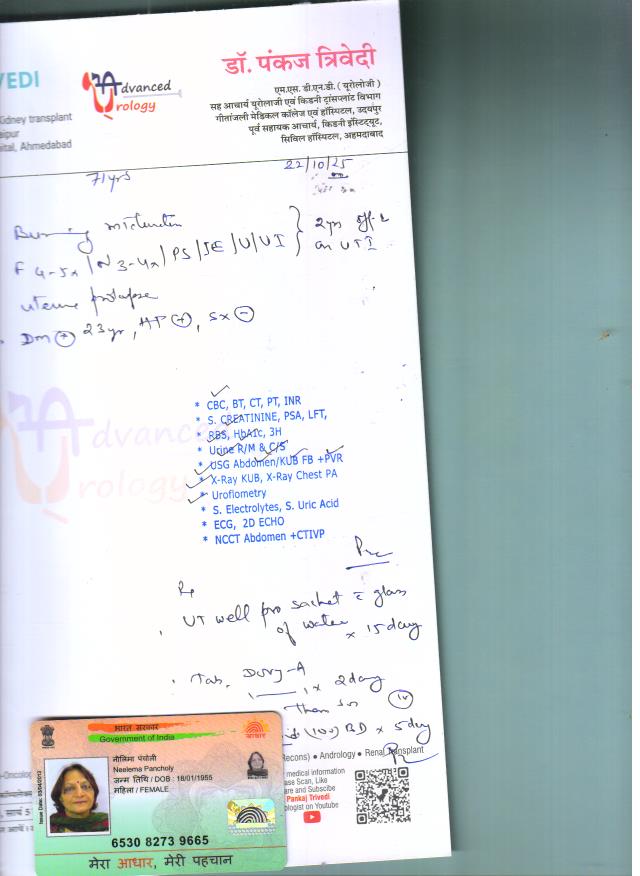 VEDI
Advanced
Urology
Kidney transplant
ital, Ahmedabad
डॉ. पंकज त्रिवेदी
एम.एस. डी.एन.बी. ( यूरोलोजी )
सह आचार्य यूरोलाजी एवं किडनी ट्रांसप्लांट विभाग
गीतांजली मेडिकल कॉलेज एवं हॉस्पिटल, उदयपुर
पूर्व सहायक आचार्य, किडनी इंस्टिट्यूट,
सिविल हॉस्पिटल, अहमदाबाद
71yrs
22/10/25
Burning micturition
F 4-5x / N 3-4x / PS / IE / U / UI
2yrs off &
on UTI
uterine prolapse
DM + 23 yr, HP +, Sx -
* CBC, BT, CT, PT, INR
* S. CREATININE, PSA, LFT,
* RBS, HbA1c, 3H
* Urine R/M & C/S
* USG Abdomen/KUB FB +PVR
* X-Ray KUB, X-Ray Chest PA
* Uroflometry
* S. Electrolytes, S. Uric Acid
* ECG, 2D ECHO
* NCCT Abdomen +CTIVP
Advanced
Urology
UT well pro sachet c glass
of water x 15 day
Tab.
x 2 day
Than
(100) BD x 5 day
Recons) • Andrology • Renal Transplant
medical information
ase Scan, Like
are and Subscibe
Pankaj Trivedi
ologist on Youtube
भारत सरकार
Government of India
आधार
Neelema Pancholy
जन्म तिथि / DOB : 18/01/1955
महिला / FEMALE
6530 8273 9665
मेरा आधार, मेरी पहचान